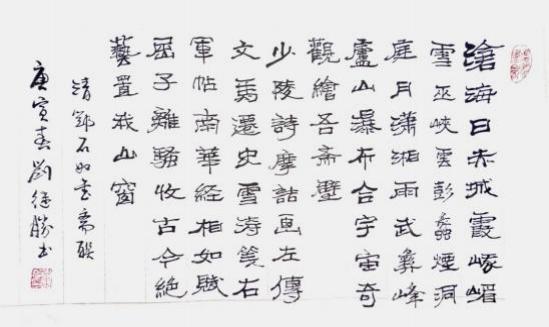 滄海日赤城霞峨嵋
雪巫峽雲彭蠡煙洞
庭月瀟湘雨武彝峰
廬山瀑布合宇宙奇
觀繪吾斋壁
少陵詩摩詰画左傳
文馬遷史雪涛箋右
軍帖南華經相如賦
屈子離騷收古今絕
藝置我山窗
清鄧石如書齋聯
庚寅春劉勝书